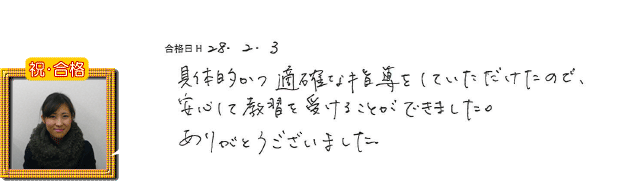 合格日 H 28. 2. 3
祝・合格
具体的かつ適確な指導をしていただけたので、
安心して教習を受けることができました。
ありがとうございました。